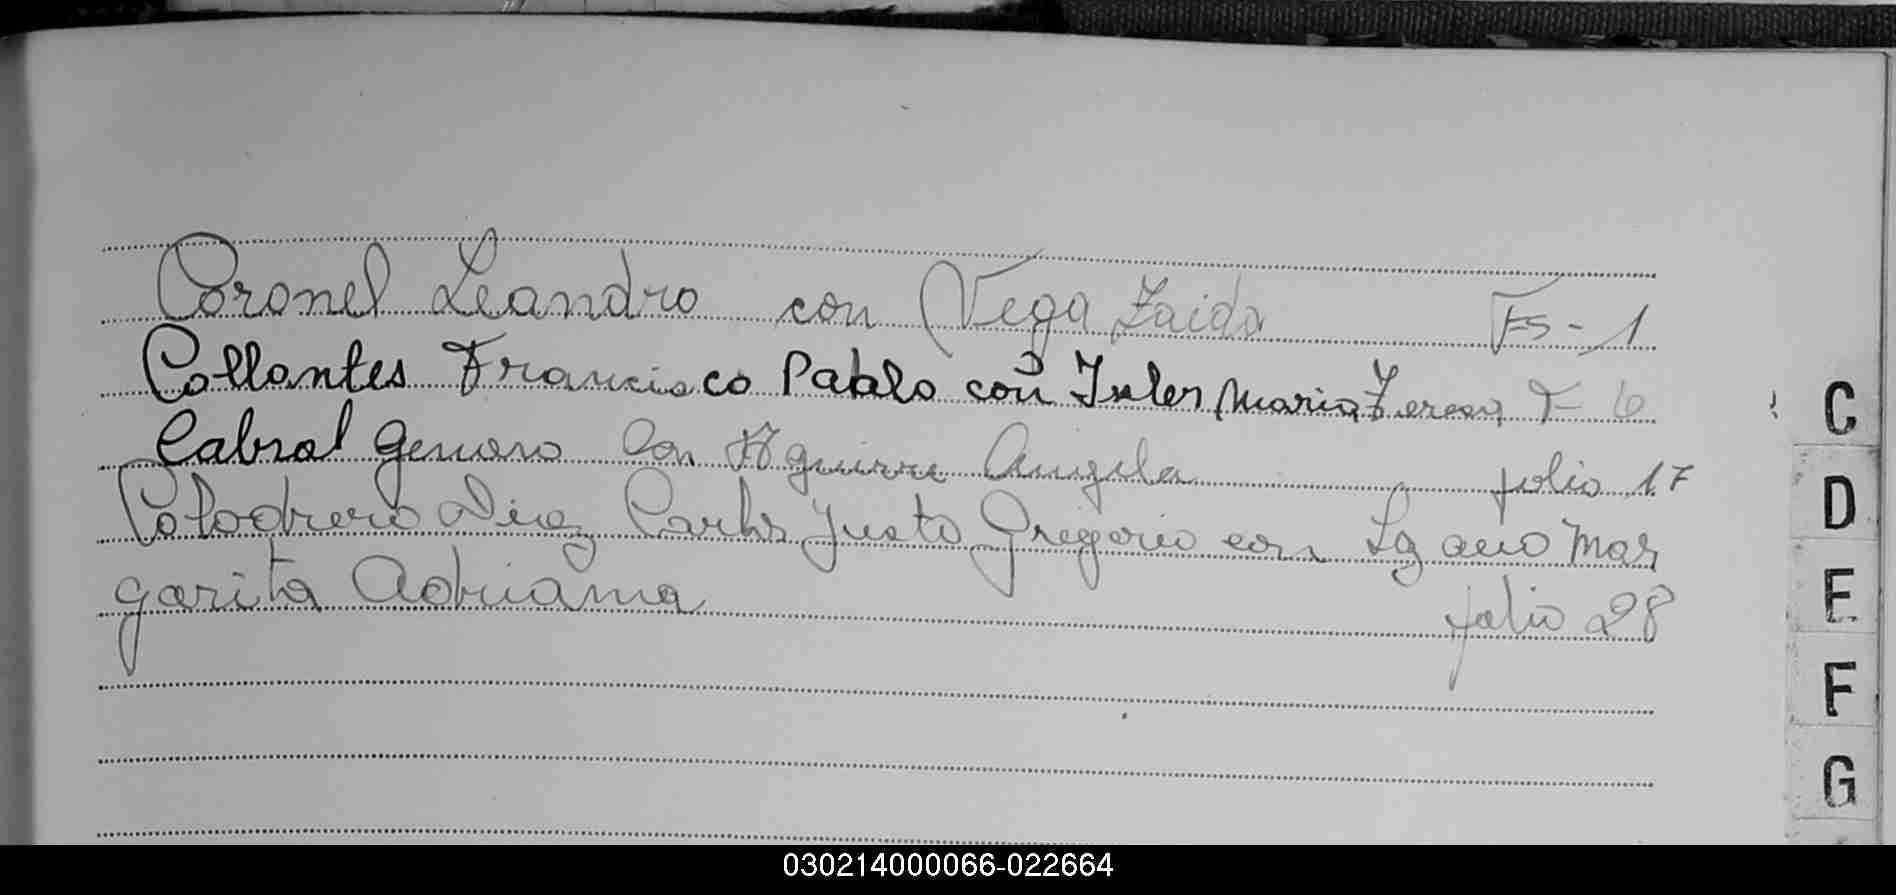 Coronel Leandro con Vega Zaida Fs-1
Collantes Francisco Pablo con Maria Teresa F- 6
Cabral Genaro Con Aguirre Angela folio 17
Colodrero Diaz Carlos Justo Gregorio con Mar
garita Adriana folio 28
C
D
E
F
G
030214000066-022664